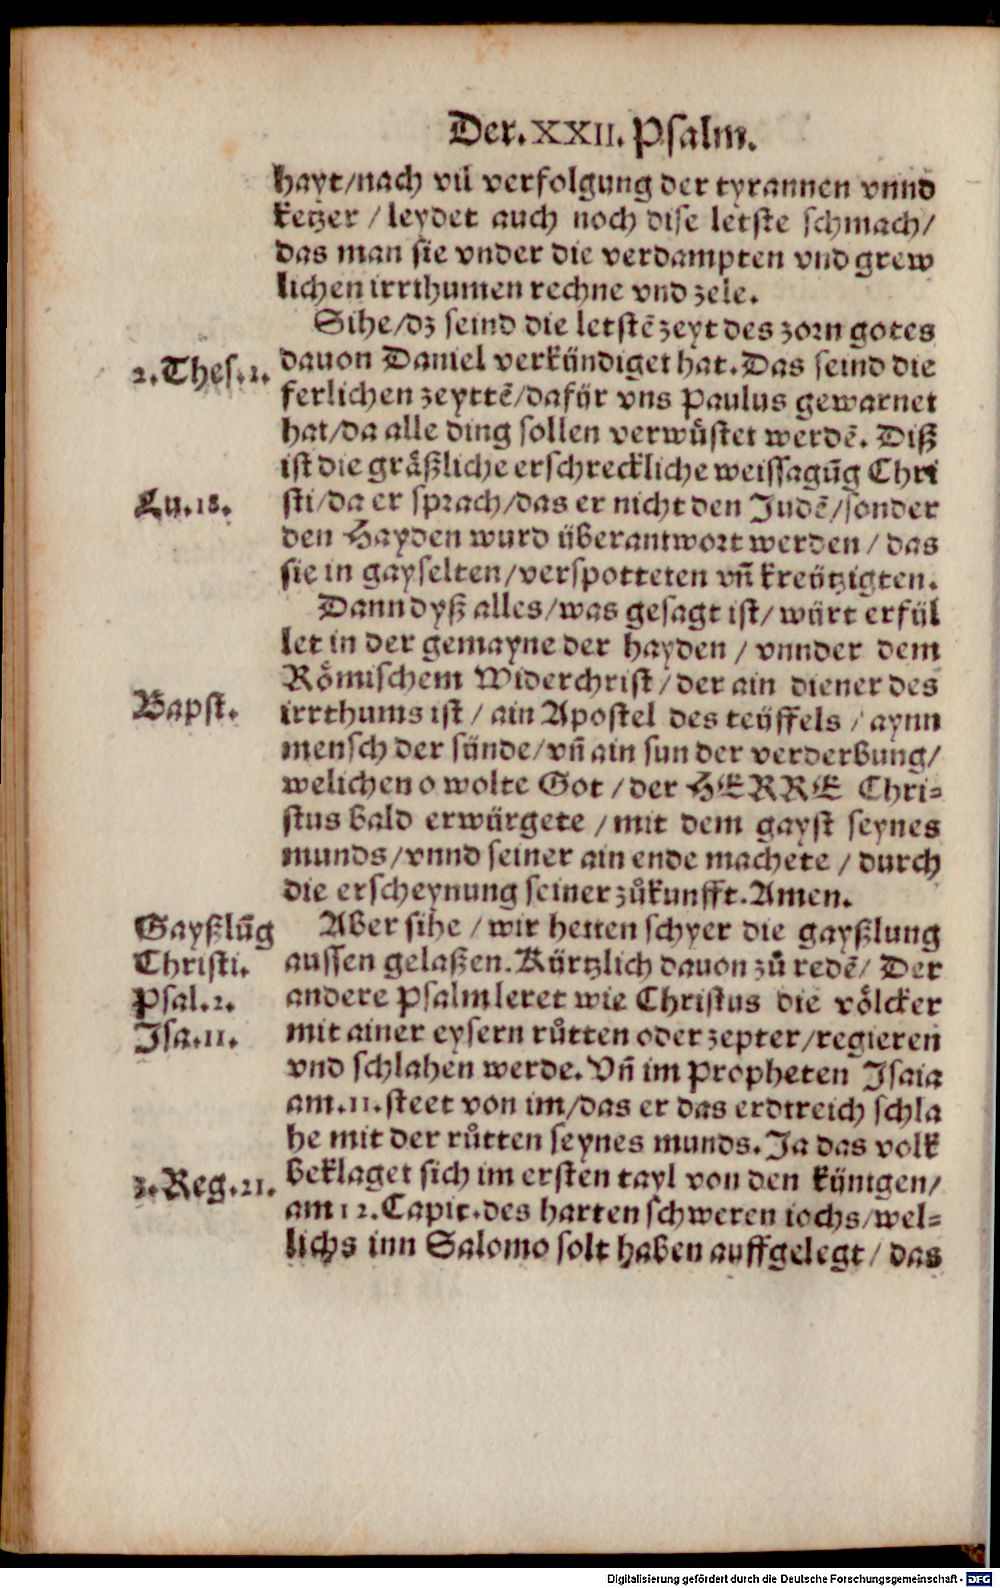 Der. XXII. Psalm.
hayt/nach vñ verfolgung der tyrannen vnnd
ketzer / leydet auch noch dise letste schmach/
das man sie vnder die verdampten vnd grew
lichen irrthumen rechne vnd zele.
Sihe/dz seind die letstẽ zeyt des zorn gotes
2. Thes. 2. dauon Daniel verkündiget hat. Das seind die
ferlichen zeyttẽ/dafür vns Paulus gewarnet
hat/da alle ding sollen verwuͤstet werdẽ. Diß
ist die gräßliche erschreckliche weissagũg Chri
Lu. 18. sti/da er sprach/das er nicht den Judẽ/sonder
den Hayden wurd überantwort werden / das
sie in gayselten/verspotteten vñ kreützigten.
Dann dyß alles/was gesagt ist/ würt erfül
let in der gemayne der hayden / vnnder dem
Römischem Widerchrist/der ain diener des
Bapst. irrthums ist / ain Apostel des teüffels / aynn
mensch der sünde/vñ ain sun der verderbung/
welichen o wolte Got / der HERRE Chri=
stus bald erwürgete / mit dem gayst seynes
munds/vnnd seiner ain ende machete / durch
die erscheynung seiner zuͦkunfft. Amen.
Gayßlũg Aber sihe / wir hetten schyer die gayßlung
Christi. aussen gelaßen. Kürtzlich dauon zuͦ redẽ/ Der
Psal. 2. andere Psalm leret wie Christus die völcker
Isa. 11. mit ainer eysern ruͦtten oder zepter/regieren
vnd schlahen werde. Vñ im Propheten Isaia
am. 11. steet von im/das er das erdtreich schla
he mit der ruͦtten seynes munds. Ja das volk
3. Reg. 21. beklaget sich im ersten tayl von den künigen/
am 12. Capit. des harten schweren iochs/wel=
lichs inn Salomo solt haben auffgelegt / das
Digitalisierung gefördert durch die Deutsche Forschungsgemeinschaft - DFG